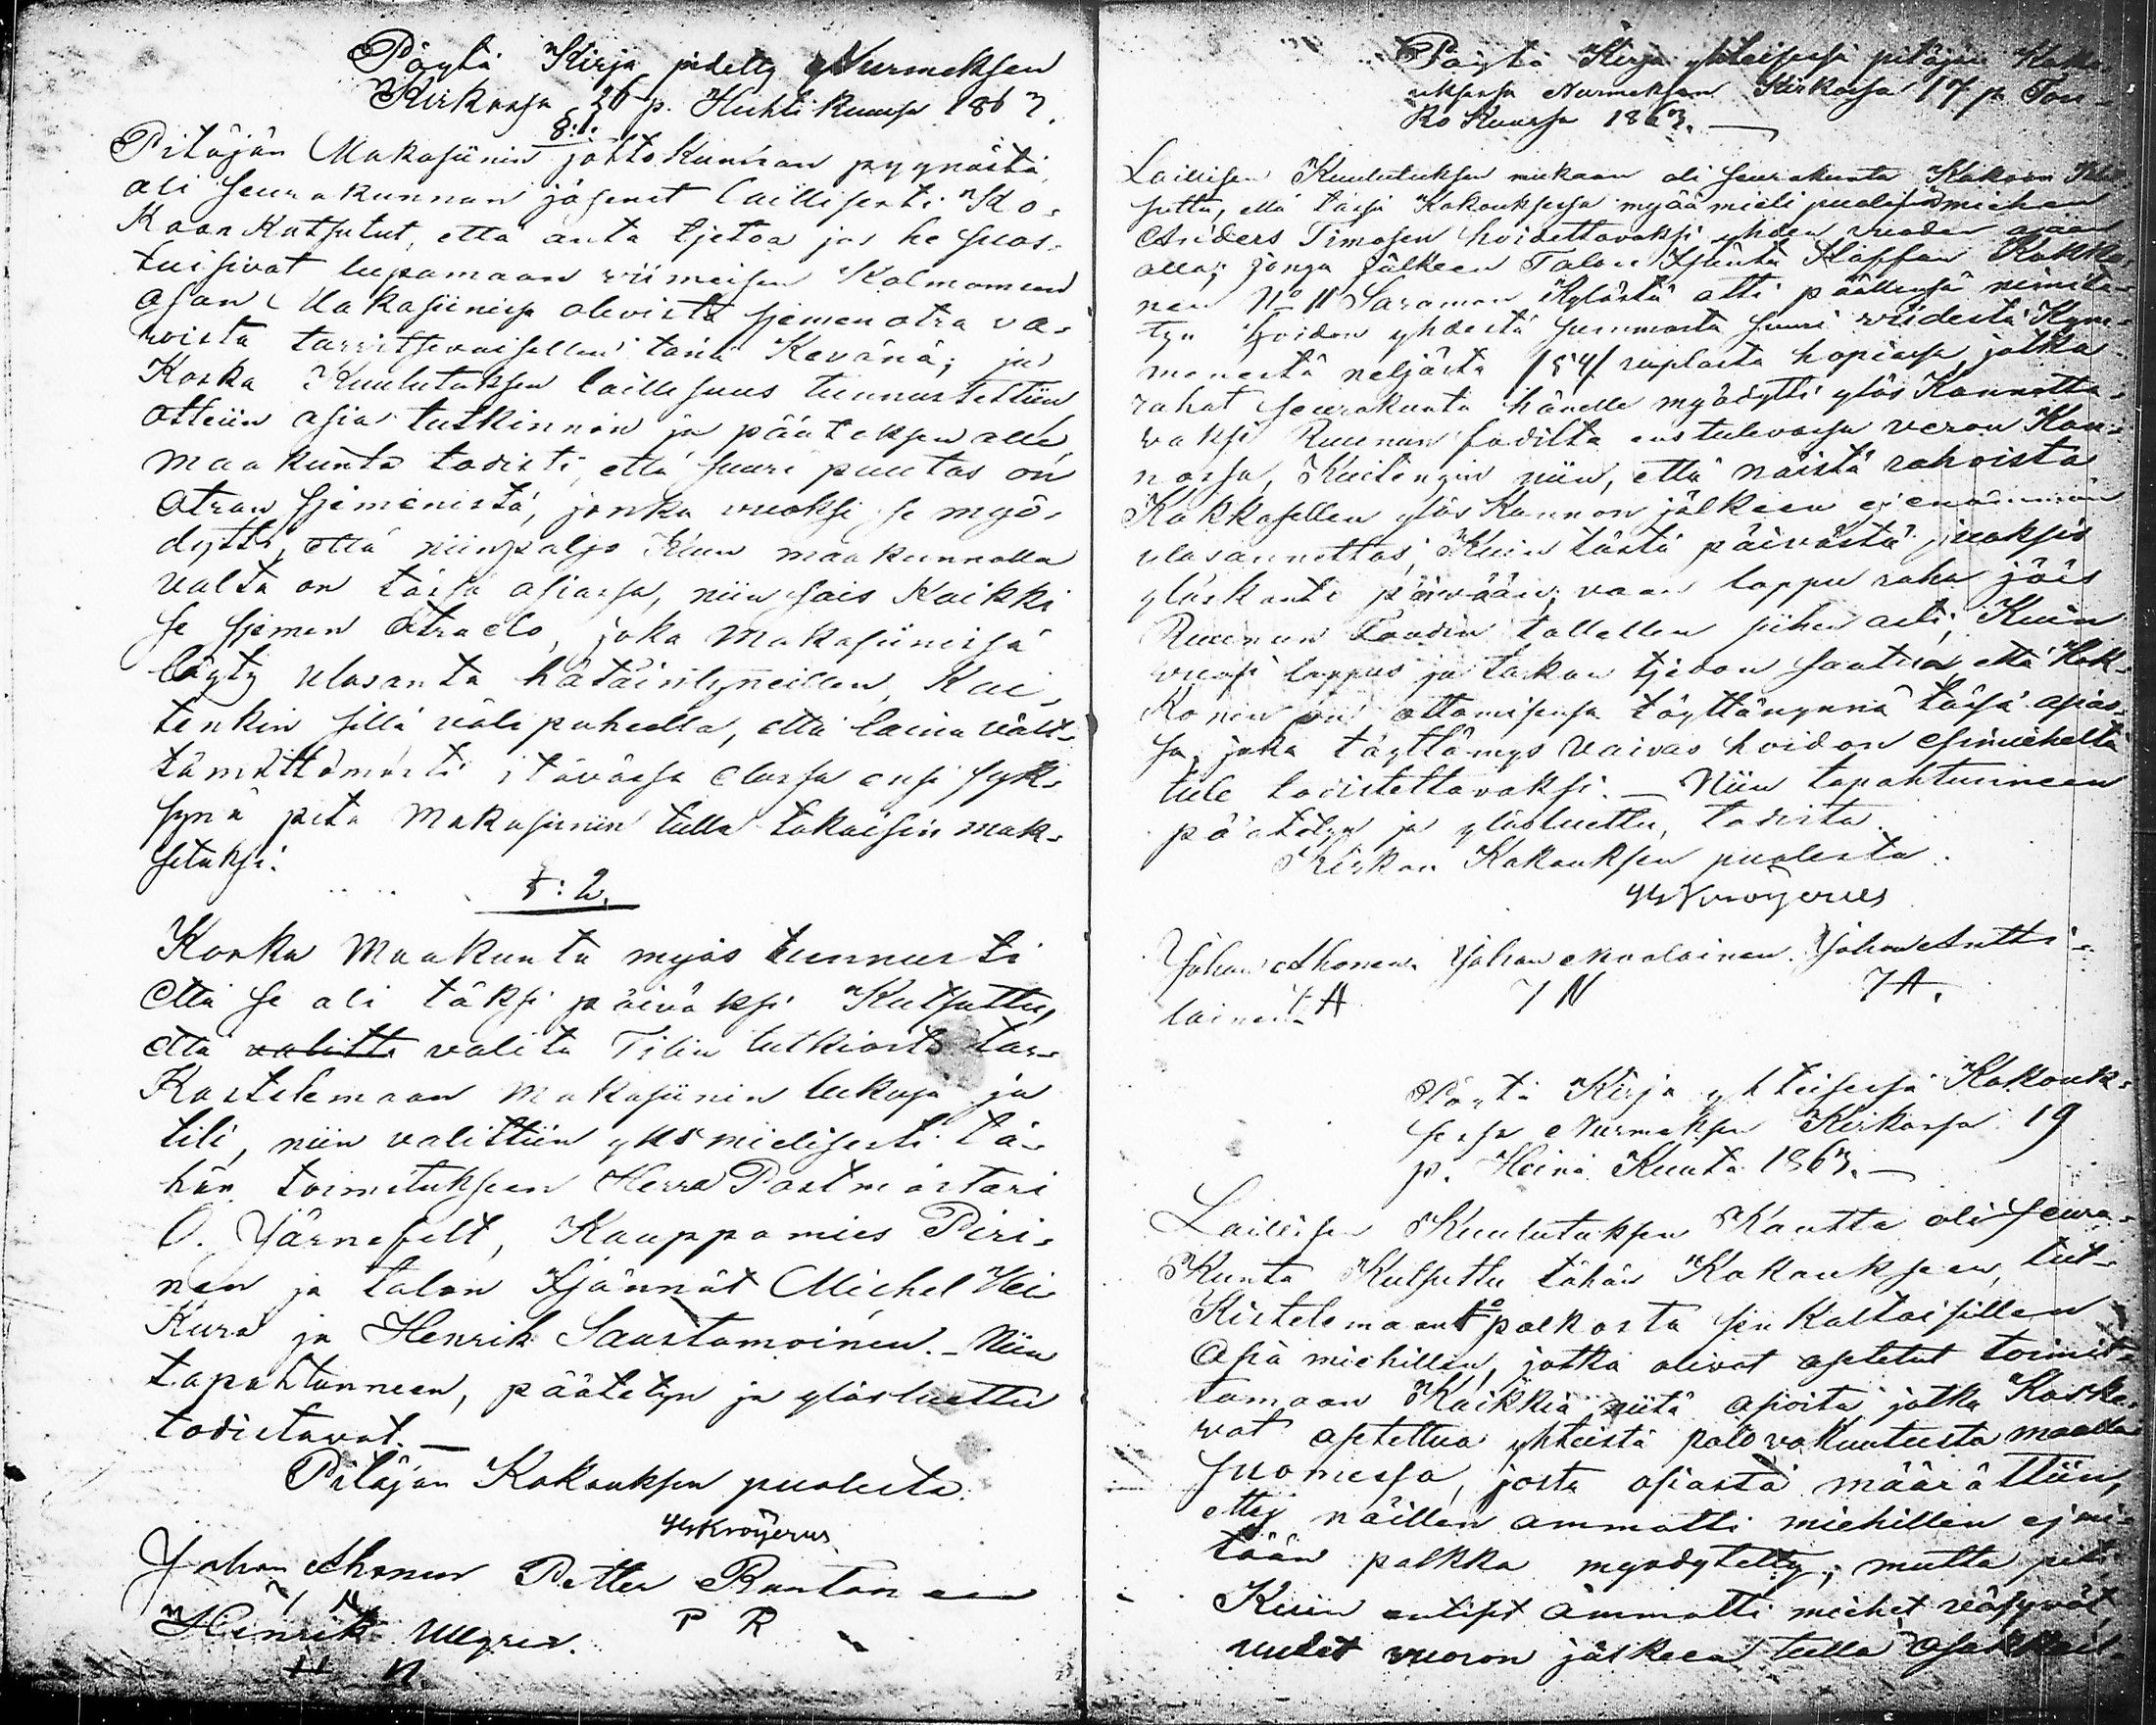 Pöytä Kirja pidetty Nurmeksen
Kirkossa 26 p. Huhti Kuussa 1863.
§:1.
Pitäjän Makasiinin johtokunnan pyynöstä,
oli seurakunnan jäsenet laillisesti Ko-
koon Kutsutut, että anta tjetoa jos he suos-
tuisivat lupamaan viimeisen Kolmannen
osan Makasiinissa olevista sjemen otra va-
roista tarvitsevaisellen tänä Keväнä; ja
Koska Kuulutuksen laillisuus tunnustettiin
otteiin asia tutkinnon ja päätöksen alle,
maakunta todisti, että suuri puutos on
otran sjemenistä, jonka vuoksi se myö-
dytti, että niinpaljo Kun maakunnalla
valta on täsä asiassa, niin sais Kaikki
se sjemen otra elo, joka Makasiinissä
löyty ulosanta hätäintyneillen, Kui-
tenkin sillä välipuheella, että laina vält-
tämättömästi itävässä elossa ensi syk-
synä pitä Makasiiniin tulla takaisin mak-
setuksi.
§:2.
Koska Maakunta myös tunnusti
että se oli täksi päiväksi Kutsuttu,
että valitti valita Tilin tutkioita tar-
Kastelemaan Makasiinin lukuja ja
tili, niin valittiin yksmielisesti tä-
hän toimitukseen Herra Postmästari
O. Järnefelt, Kauppamies Piri-
nen ja talon Isännät Michel Hei-
Kura ja Henrik Saastamoinen. - Niin
tapahtunneen, päätetyn ja ylösluettu
todistavat. -
Pitäjän Kokouksen puolesta.
Kröyerus
Johan Ahonen Petter Rautanen
P R
Henrik
H N.
Pöytä Kirja yhteisessä pitäjän Koko-
uksessa Nurmeksen Kirkossa 17 p Tou-
Ko Kuussa 1863. -
Laillisen Kuulutuksen mukaan oli seurakunta Kokoon Kut-
suttu, että täsä Kokouksessa myää mieli puolisen miehen
Anders Timosen hoidettavaksi yhden vuoden ajan
alla; jonga jälkeen Talon Isäntä Staffan Kokko-
nen No 11 Saramon Kylästä otti päällensä nimite-
tyn hoidon yhdestä summasta suuri viidestä Kym-
menestä neljästä /54/ ruplasta hopiassa, jotka
rahat seurakunta hänelle myödytti ylös Kannetta-
vaksi Ruunun foudilta ens tulevassa veron Kan-
nossa, Kuitengin niin, että näistä rahoista
Kokkosellen ylös Kannon jälkeen ej enämmän
ulosannettas, Kuin tästä päivästä juoksis
ylöskanto päivään; vaan loppu raha jäis
Ruunun Foudin tallellen siihen asti, Kuin
vuosi loppus ja tarkan tjedon saatua että Kok-
Konen on ottamisensa täyttänynnä täsä asias-
sa, joka täyttämys vaivas hoidon esimieheltä
tule todistettavaksi. - Niin tapahtunneen
päätetyn ja ylösluettu, todista.
Kirkon Kokouksen puolesta.
Kröyerus
Johan Ahonen. Johan Nuolainen. Johan Antti-
lainen. I A I N I A.
Pöytä Kirja yhteisessä Kokouk-
sessa Nurmeksen Kirkossa 19
p. Heinä Kuuta 1863. -
Laillisen Kuulutuksen Kautta oli seura-
Kunta Kutsuttu tähän Kokoukseen, tut-
Kistelemaan 1o palkosta sen kaltaisillen
Asia miehillen, jotka olivat asetetut toimit-
tamaan Kaikkia niitä asioita jotka Koske-
vat asetettua yhteistä palovakuutusta maalla
Suomessa, josta asiasta määrättiin,
ettej näillen ammatti miehillen ej mi-
tään palkka myödytetty; mutta piti
Kuin entiset ammatti miehet väsyvät,
uudet vuoron jälkeen tulla